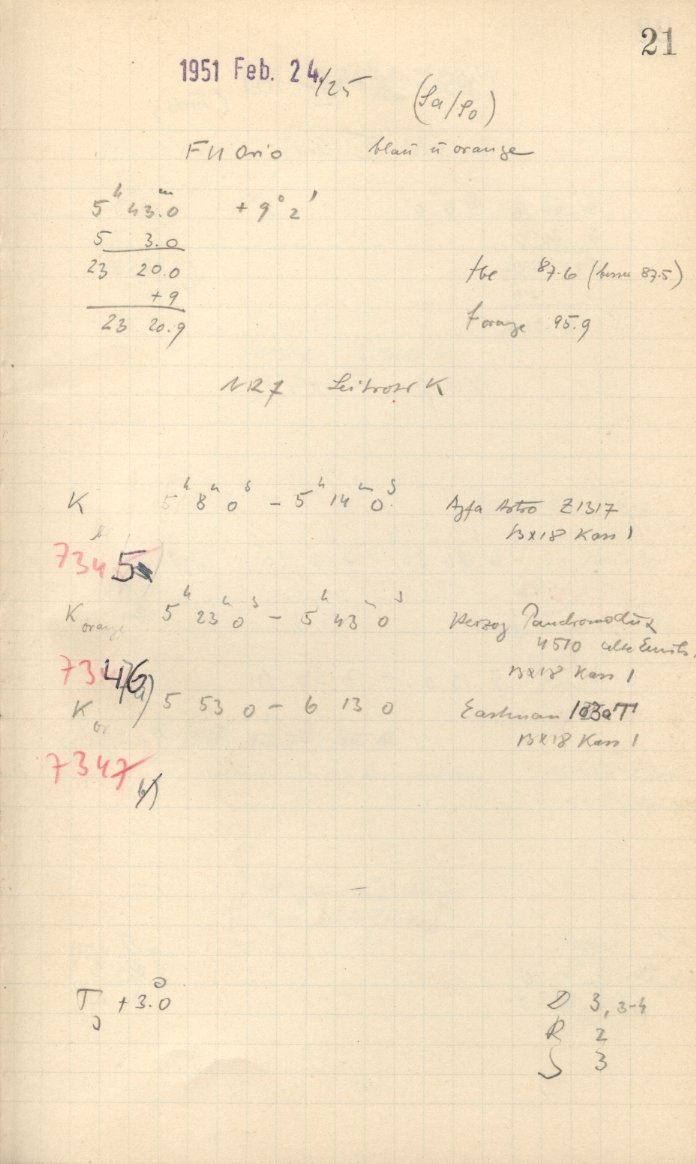 21
1951 Feb. 24./25 (Sa/So)
FU Orio blau u orange
5h 43.0m + 9° 2'
5 3.0
23 20.0 fbe 87.6 (besser 87.5)
+9
23 20.9 forange 95.9
NR 7 Leitrohr K
K 5h 8m 0s – 5h 14m 0s Agfa Astro Z1317
13x18 Kass 1
7345
K orange 5h 23m 0s – 5h 43m 0s Herzog
4510 alte Emuls.
7346 a) 13x18 Kass 1
K or 5 53 0 – 6 13 0 Eastman 103aT
13x18 Kass 1
7347 b)
T +3.0 D 3, 3-4
R 2
S 3